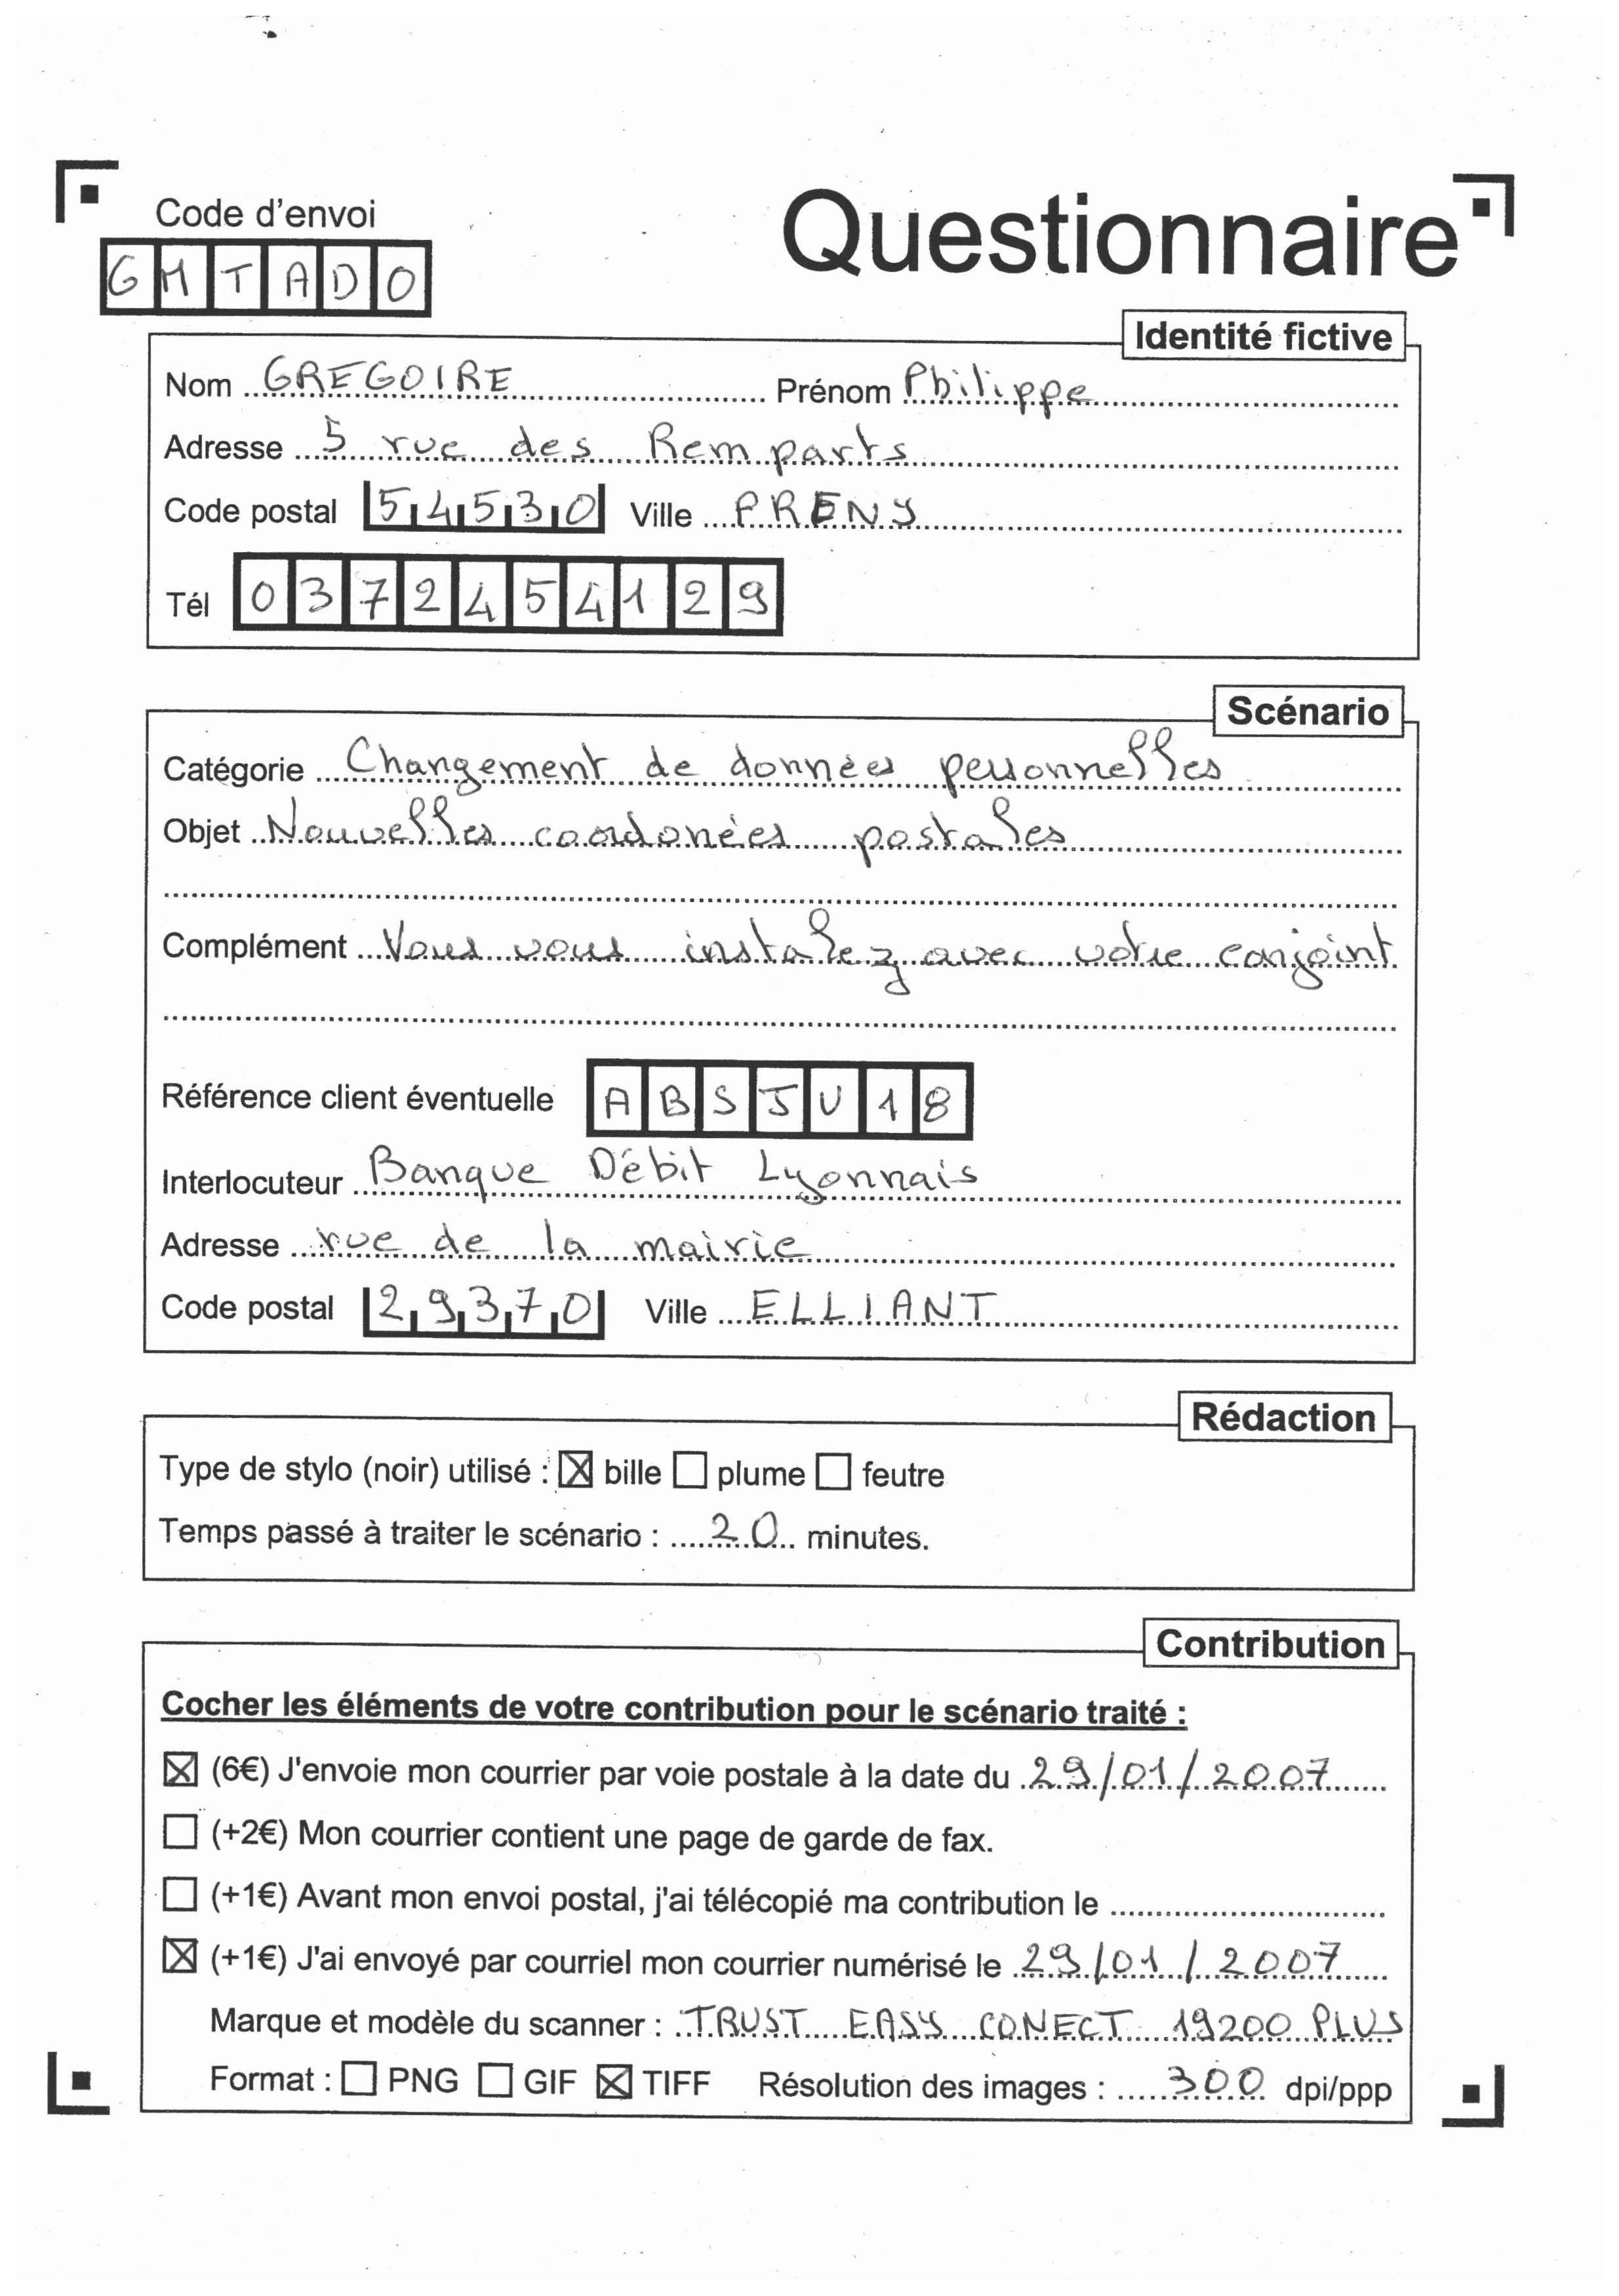 Code d'envoi
Questionnaire
GMTADO
Identité fictive
Nom GREGOIRE Prénom Philippe
Adresse 5 rue des Remparts
Code postal 54530 Ville PRENY
Tél 0372454129
Scénario
Catégorie Changement de données personnelles
Objet Nouvelles coordonées postales
Complément Vous vous instalez avec votre conjoint
Référence client éventuelle ABSJU18
Interlocuteur Banque Débit Lyonnais
Adresse rue de la mairie
Code postal 29370 Ville ELLIANT
Rédaction
Type de stylo (noir) utilisé : ☒ bille ☐ plume ☐ feutre
Temps passé à traiter le scénario : 20 minutes.
Contribution
Cocher les éléments de votre contribution pour le scénario traité :
☒ (6€) J'envoie mon courrier par voie postale à la date du 29/01/2007
☐ (+2€) Mon courrier contient une page de garde de fax.
☐ (+1€) Avant mon envoi postal, j'ai télécopié ma contribution le
☒ (+1€) J'ai envoyé par courriel mon courrier numérisé le 29/01/2007
Marque et modèle du scanner : TRUST EASY CONECT 19200 PLUS
Format : ☐ PNG ☐ GIF ☒ TIFF Résolution des images : 300 dpi/ppp